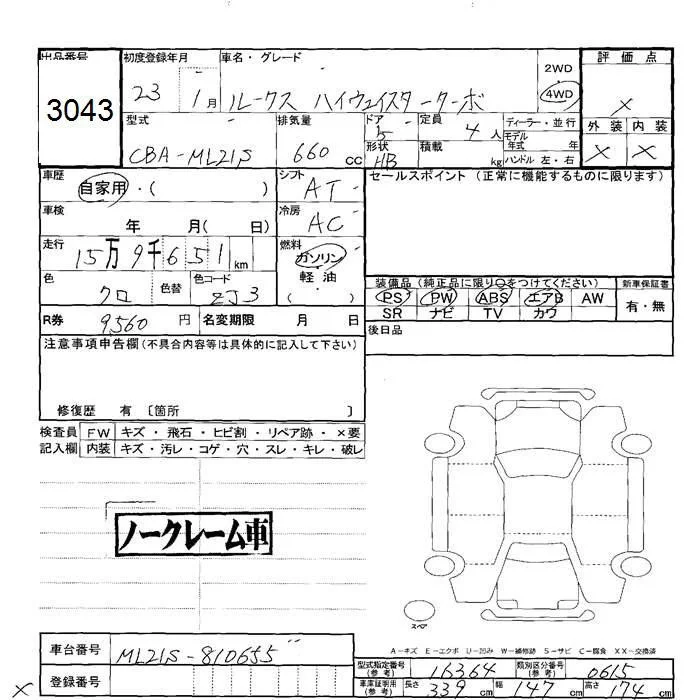 出品番号
3043
初度登録年月
23 1月
車名・グレード
ルークス ハイウェイスターターボ
2WD
4WD
評価点
×
外装 内装
× ×
型式
CBA-ML21S
排気量
660 cc
ドア
5
形状
HB
定員
4人
積載
kg
ディーラー・並行
モデル年式 年
ハンドル 左・右
車歴
自家用・( )
シフト
AT
車検
年 月( 日)
冷房
AC
走行
15万9千651km
燃料
ガソリン
軽油
( )
色
クロ
色替
色コード
ZJ3
R券 9560円 名変期限 月 日
セールスポイント(正常に機能するものに限ります)
装備品(純正品に限り○をつけてください)
PS PW ABS エアB AW
SR ナビ TV カワ
新車保証書
有・無
後日品
注意事項申告欄(不具合内容等は具体的に記入して下さい)
修復歴 有 〔箇所 〕
検査員記入欄
FW キズ・飛石・ヒビ割・リペア跡・×要
内装 キズ・汚レ・コゲ・穴・スレ・キレ・破レ
ノークレーム車
スペア
A-キズ E-エクボ U-凹み W-補修跡 S-サビ C-腐食 XX-交換済
車台番号 ML21S-810655
登録番号
型式指定番号(参考) 16364 類別区分番号(参考) 0615
車庫証明用(参考) 長さ 339cm 幅 147cm 高さ 174cm
×